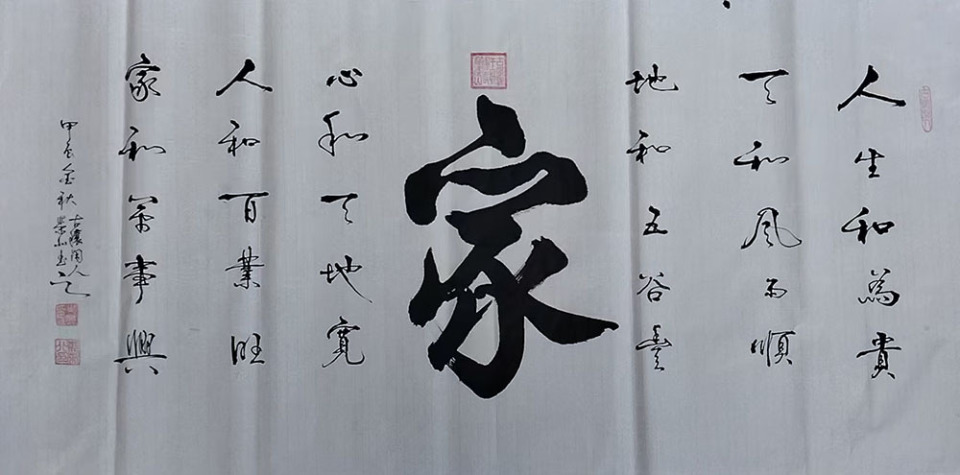 人生和為貴
天和風雨順
地和五谷豊
家
心和天地寬
人和百業旺
家和萬事興
甲辰金秋
古穰閑人